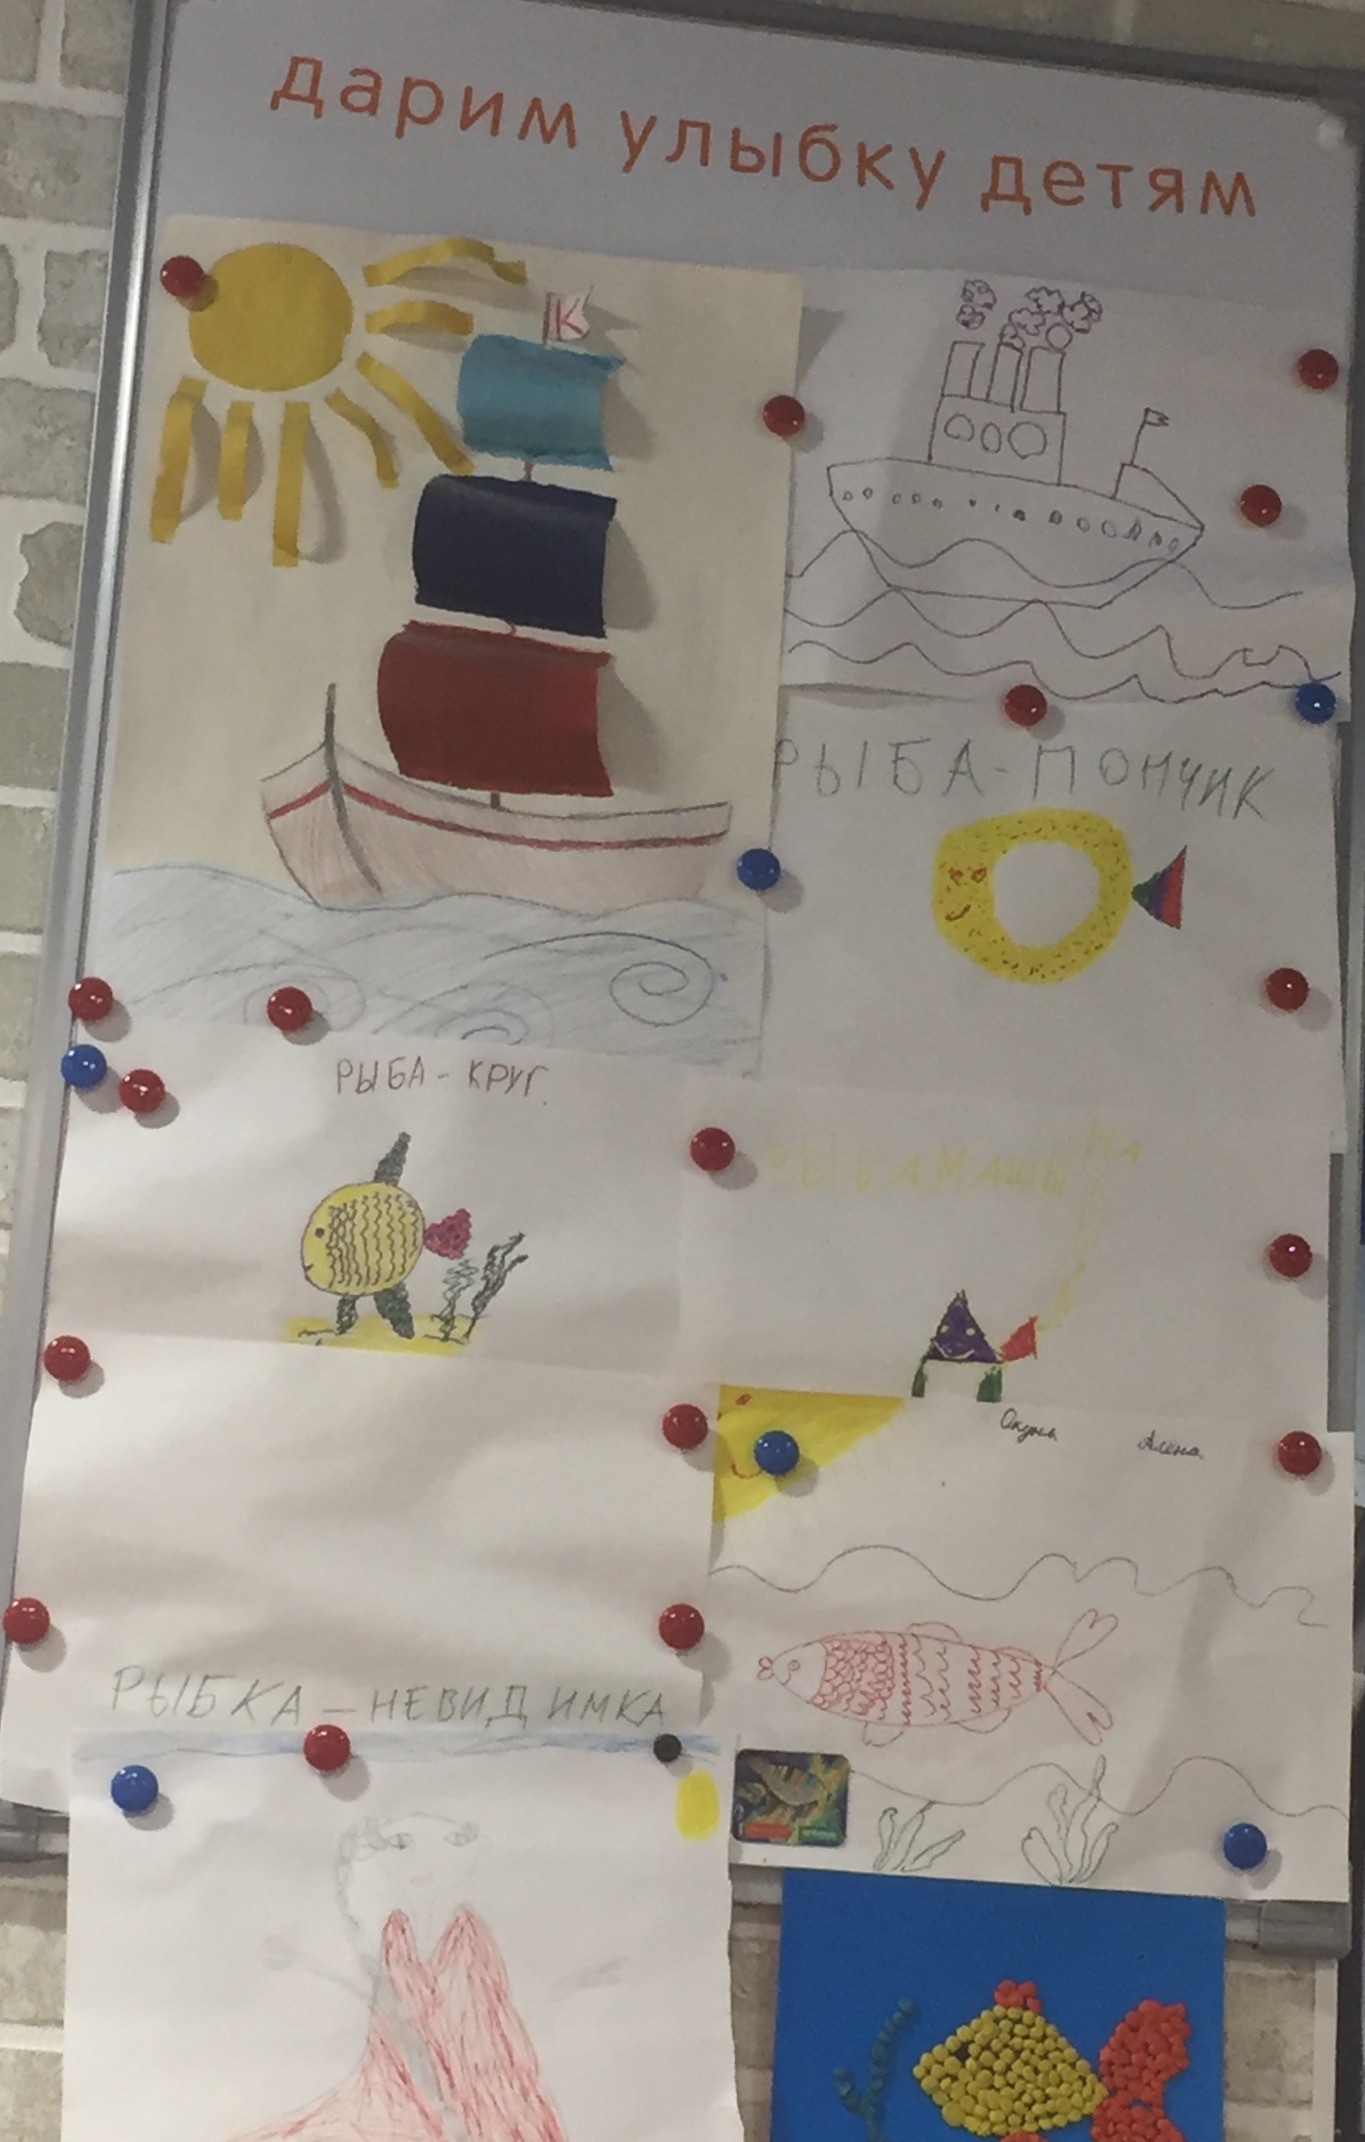 дарим улыбку детям
К
РЫБА-ПОНЧИК
РЫБА-КРУГ.
РЫБАМАШЫНА
Окунь Алена
РЫБКА-НЕВИДИМКА